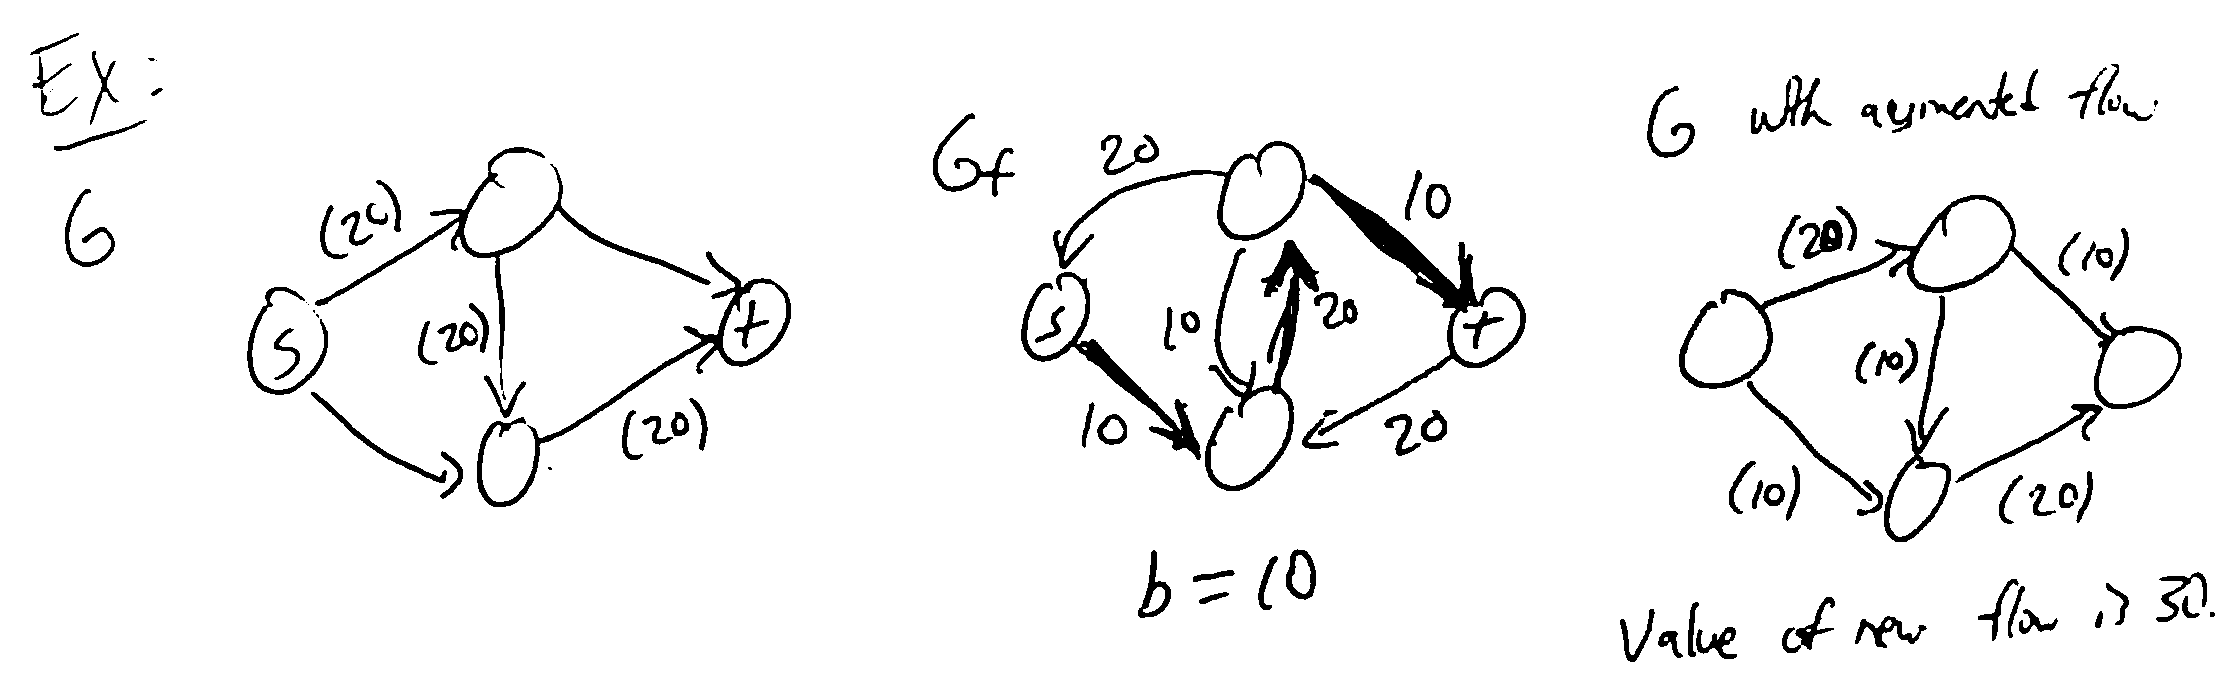 Ex:
G
(20)
(20)
(20)
s
t
Gf
20
10
10
20
10
20
s
t
b = 10
G with augmented flow
(20)
(10)
(10)
(10)
(20)
Value of new flow is 30.